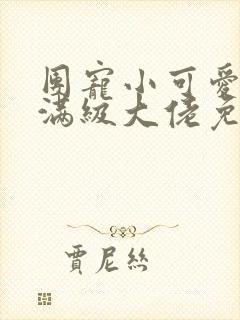 團寵小可愛
滿級大佬免
賈尼絲